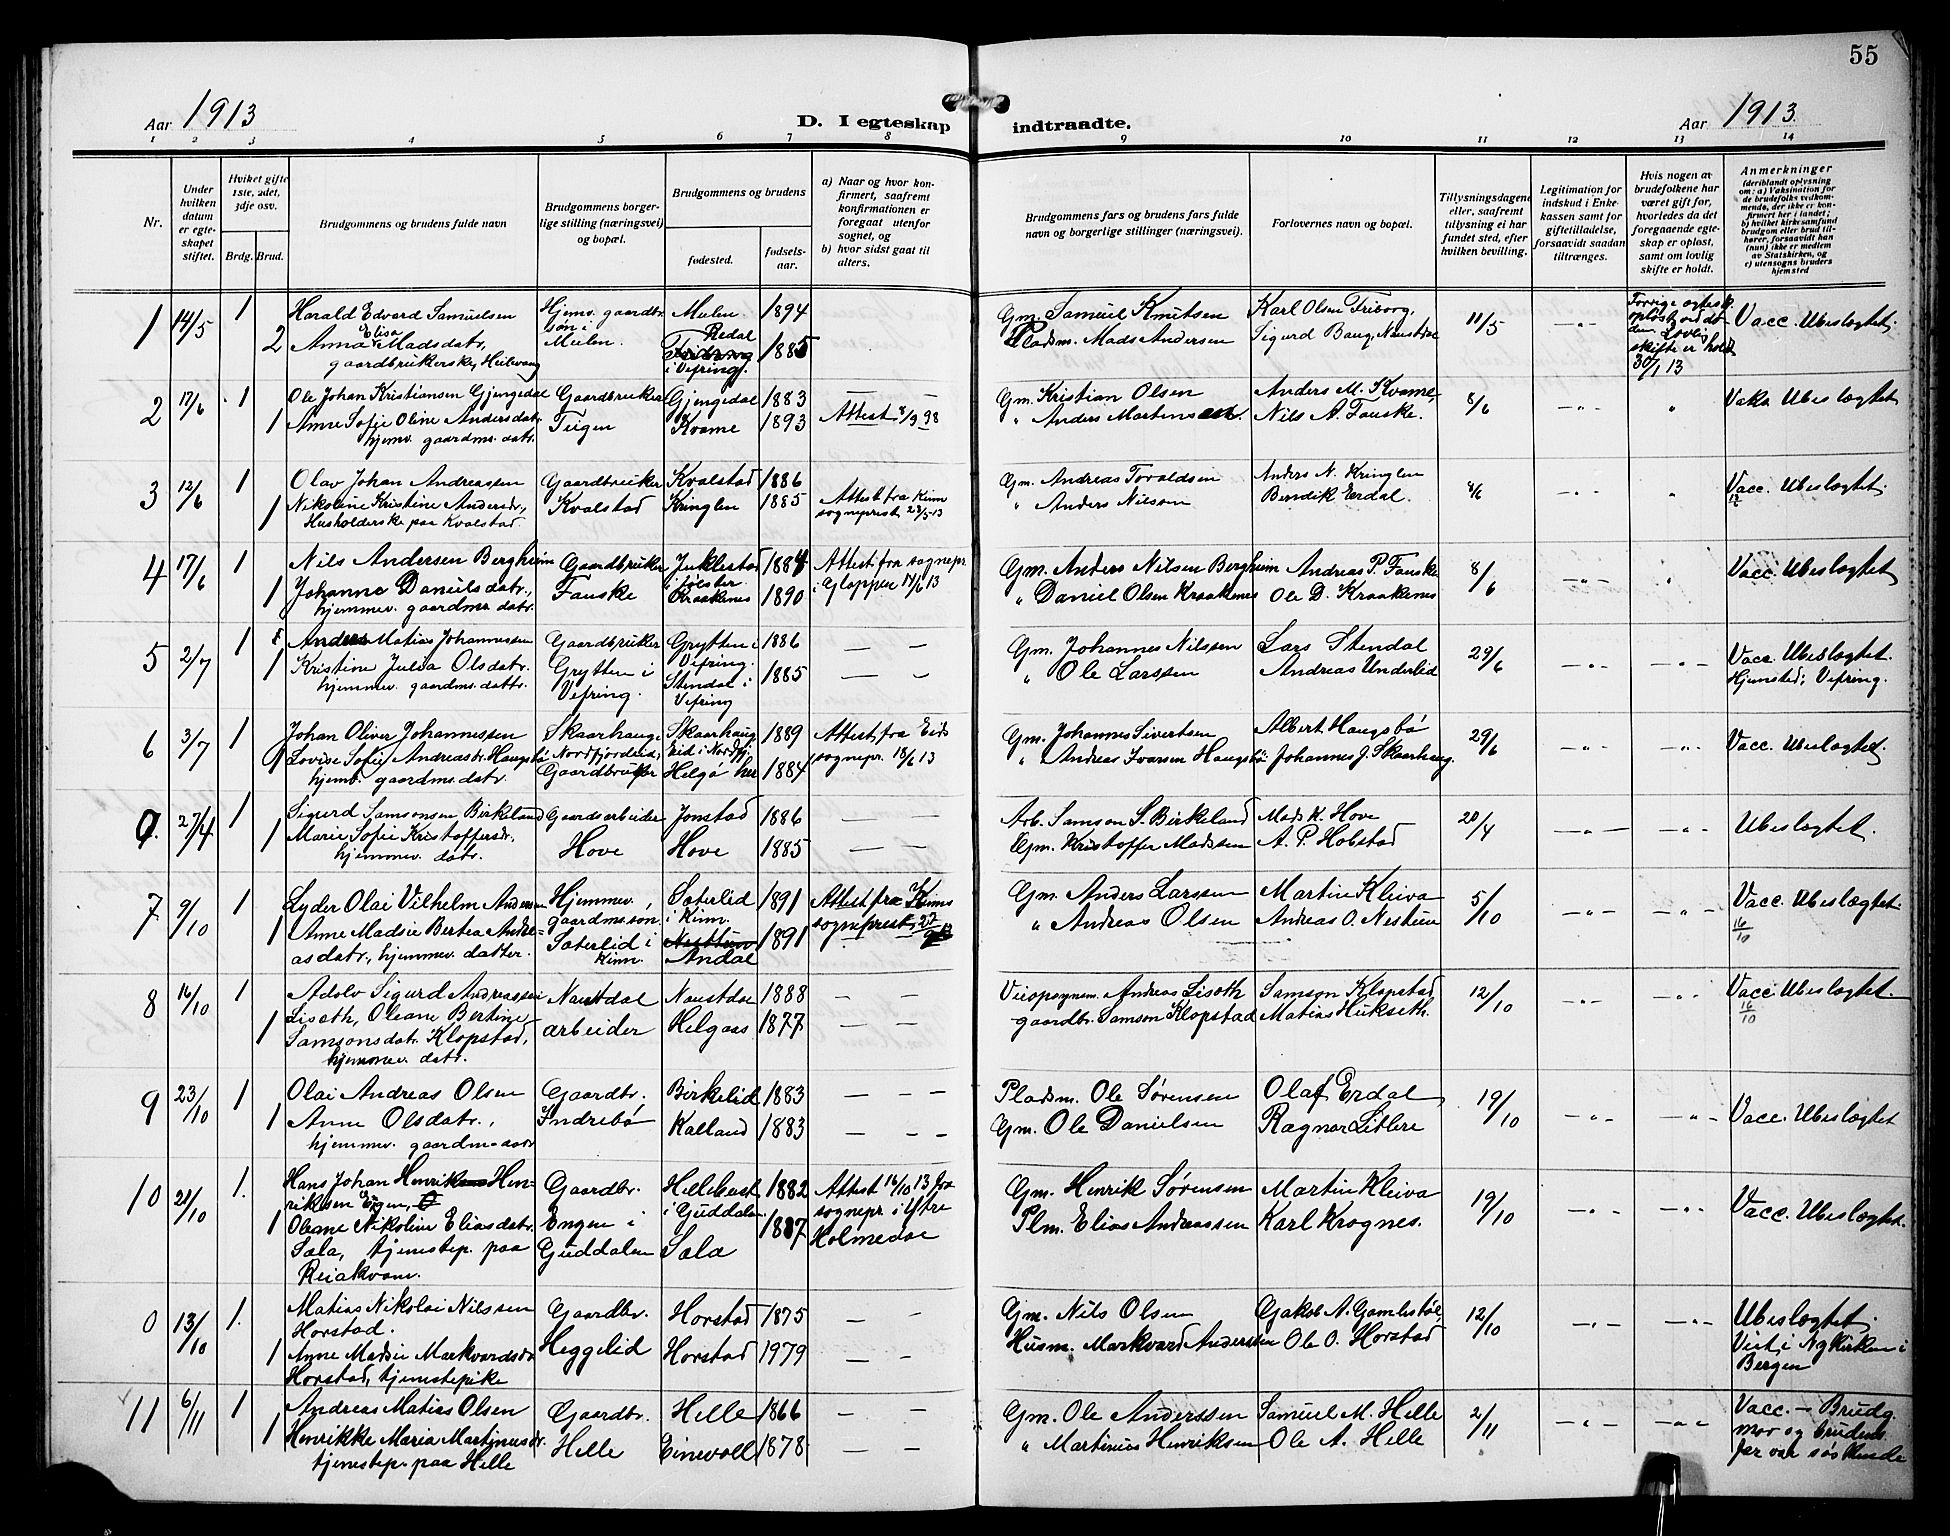 55
Aar 1913
D. I egteskap
indtraadte.
Aar 1913.
1 2 3 4 5 6 7 8
9 10 11 12 13 14
Nr.
Under hvilken datum er egteskapet stiftet.
Hviket gifte 1ste, 2det, 3dje osv.
Brdg. Brud.
Brudgommens og brudens fulde navn
Brudgommens borgerlige stilling (næringsvei) og bopæl.
Brudgommens og brudens
fødested.
fødselsaar.
a) Naar og hvor konfirmert, saafremt konfirmationen er foregaat utenfor sognet, og
b) hvor sidst gaat til alters.
Brudgommens fars og brudens fars fulde navn og borgerlige stillinger (næringsvei).
Forlovernes navn og bopæl.
Tillysningsdagene eller, saafremt tillysning ei har fundet sted, efter hvilken bevilling.
Legitimation for indskud i Enkekassen samt for giftetilladelse, forsaavidt saadan tiltrænges.
Hvis nogen av brudefolkene har været gift før, hvorledes da det foregaaende egteskap er opløst, samt om lovlig skifte er holdt.
Anmerkninger
(deriblandt oplysning om: a) Vaksination for de brudefolks vedkommende, der ikke er konfirmert her i landet; b) hvilket kirkesamfund brudgom eller brud tilhører, forsaavidt han (hun) ikke er medlem av Statskirken, og c) utensogns bruders hjemsted
1 14/5 1 Harald Edvard Samuelsen Hjemv. gaardbr. Mulen 1894 Gm. Samuel Knutsen Karl Olsen Friborg, 11/5 -"- Forrige egtesk. Vacc. Ubeslegtet.
2 Anna Elisa Madsdatr. søn i Mulen Redal 1885 Pladsm. Mads Andersen Sigurd Baug, Naustdal opløst ved død
gaardbrukerske, i Vefring. Lovlig skifte er holdt
30/1 13
2 17/6 1 Ole Johan Kristiansen Gjengedal Gaardbruker Gjengedal 1883 — — Gm. Kristian Olsen Anders M. Kvame, 8/6 -"- " Vaks. Ubeslegtet
1 Anne Sofie Oline Andersdatr. Kvame 1893 Attest 98 " Anders Nils A. Fauske.
hjemv. gaardms. datr.
3 12/6 1 Olav Johan Andreassen Gaardbruker Kvalstad 1886 Gm. Andreas Toraldsen Anders N. Kringlen 8/6 -"- " Vacc. Ubeslegtet.
1 Nikoline Kristine Andersdr., Kvalstad Kringlen 1885 Attest fra Kinn " Anders Nilsen Bendik Erdal.
Husholderske paa Kvalstad. sogneprest 23/5-13
4 17/6 1 Nils Andersen Bergheim Gaardbruker Juklestad 1884 Attest fra sognepr. Gm. Anders Nilsen Bergheim Andreas P. Fauske 8/6 -"- " Vacc. Ubeslegtet
1 Johanne Danielsdatr., Fauske i Jølster i Gloppen 17/6 13
hjemmev. gaardms. datr. Kraakenes 1890 " Daniel Olsen Kraakenes Ole D. Kraakenes
5 2/7 1 Anders Matias Johannessen Gaardbruker Grytten i 1886 — — Gm. Johannes Nilssen Lars Stendal 29/6 -"- -"- Vacc. Ubeslegtet.
1 Kristine Julia Olsdatr. Grytten i Vefring. " Ole Larssen Andreas Underlid Hjemsted: Vefring.
hjemmev. gaardms. dattr. Vefring. Stendal i 1885 — —
Vefring
6 3/7 1 Johan Oliver Johannessen Skaarhaug i Skaarhaug 1889 Attest fra Eids Gm. Johannes Sivertsen Albert Haugsbø 29/6 -"- -"- Vacc. Ubeslegtet.
1 Lovise Sofie Andreasdr. Haugsbø Nordfjordeid, Eid i Nordfj. sognepr. 18/6 13 " Andreas Ivarsen Haugsbø Johannes J. Skaarhaug
hjemv. gaardms. datr. Gaardbruker Helgø her 1884
0. 27/4 1 Sigurd Samsonsen Birkeland Gaardsarbeider Jonstad 1886 — — Arb. Samson S. Birkeland Mads K. Hove 20/4 -"- -"- Ubeslegtet.
1 Marie Sofie Kristoffersdr. Hove Hove 1885 — — Gm. Kristoffer Madssen A. P. Hobstad
hjemmev. datr.
7 9/10 1 Lyder Olai Vilhelm Andersen Hjemmev., Sæterlid 1891 Attest fra Kinns Gm. Anders Larssen Martin Kleiva 5/10 -"- -"- Vacc. Ubeslegtet.
1 Anne Madsie Bertea Andre- gaardms. søn i Kinn. sogneprest 27/9 13 " Andreas Olsen Andreas O. Nestun 16/10
asdatr., hjemmev. datter. Sæterlid i Kinn. Andal 1891
8 16/10 1 Adolv Sigurd Andreassen Naustdal Naustdal 1888 — — Andreas Liseth Samson Klopstad 12/10 -"- -"- Vacc. Ubeslegtet.
1 Liseth, Oleane Bertine arbeider Helgaas 1877 — — gaardbr. Samson Klopstad Matias Hukseth. 16/10
Samsonsdatr. Klopstad,
hjemmev. datr.
9 23/10 1 Olai Andreas Olsen Gaardbr. Birkelid 1883 — — Pladsm. Ole Sørensen Olaf Erdal, 19/10 -"- -"- Vacc. Ubeslegtet
1 Anne Olsdatr., Indrebø Kalland 1883 — — Gm. Ole Danielsen Ragnar Litlere
hjemmev. gaardm-datr
10 21/10 1. Hans Johan Hen- Gaardbr. 1882 Attest 16/10 13 fra Gm. Henrik Sørensen Martin Kleiva 19/10 -"- -"- Vacc. Ubeslegtet.
riksen Engen, i Guddalen. sognepr. i Ytre
1 Oleane Nikoline Eliasdatr. Engen i Holmedal Plm. Elias Andreassen Karl Krognes.
Sæla, tjenestep. paa Guddalen Sæla
Reiakvam.
0 13/10 1. Matias Nikolai Nilssen Gaardbr. Horstad 1875 — — Gm. Nils Olsen Jakob A. Gamlestøl, 12/10 -"- -"- Ubeslegtet.
Horstad. Heggelid Viet i Nykirken i
1 Anne Madsie Markvardsdr. Horstad 1979 — — Husm. Markvard Anderssen Ole O. Horstad Bergen
Horstad, tjenestepike
11 6/11 1 Andreas Matias Olsen Gaardbr. Helle 1866 — — Gm. Ole Anderssen Samuel M. Helle 2/11 -"- -"- Vacc. — Brudg.
1 Henrikke Maria Martinusdr. Helle Einevoll 1878 — — " Martinus Henriksen Ole A. Helle mor og brudens
tjenestep. paa Helle far var søskende